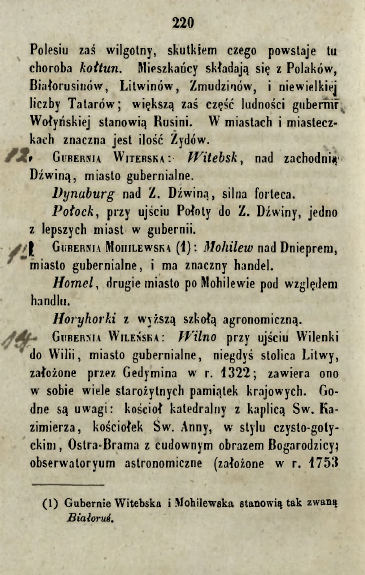 220
Polesiu zaś wilgotny, skutkiem czego powstaje tu
choroba kołtun. Mieszkańcy składają się z Polaków,
Białorusinów, Litwinów, Zmudzinów, i niewielkiej
liczby Tatarów; większą zaś część ludności gubernii
Wołyńskiej stanowią Rusini. W miastach i miastecz-
kach znaczna jest ilość Żydów.
12. Gubernia Witebska: Witebsk, nad zachodnią
Dźwiną, miasto gubernialne.
Dynaburg nad Z. Dźwiną, silna forteca.
Połock, przy ujściu Połoty do Z. Dźwiny, jedno
z lepszych miast w gubernii.
Gubernia Mohilewska (1): Mohilew nad Dnieprem,
miasto gubernialne, i ma znaczny handel.
Homel, drugie miasto po Mohilewie pod względem
handlu.
Horyhorki z wyższą szkołą agronomiczną.
14 Gubernia Wileńska: Wilno przy ujściu Wilenki
do Wilii, miasto gubernialne, niegdyś stolica Litwy,
założone przez Gedymina w r. 1322; zawiera ono
w sobie wiele starożytnych pamiątek krajowych. Go-
dne są uwagi: kościół katedralny z kaplicą Sw. Ka-
zimierza, kościołek Sw. Anny, w stylu czysto-goty-
ckim, Ostra-Brama z cudownym obrazem Bogarodzicy;
obserwatoryum astronomiczne (założone w r. 1753
(1) Gubernie Witebska i Mohilewska stanowią tak zwaną
Białoruś.